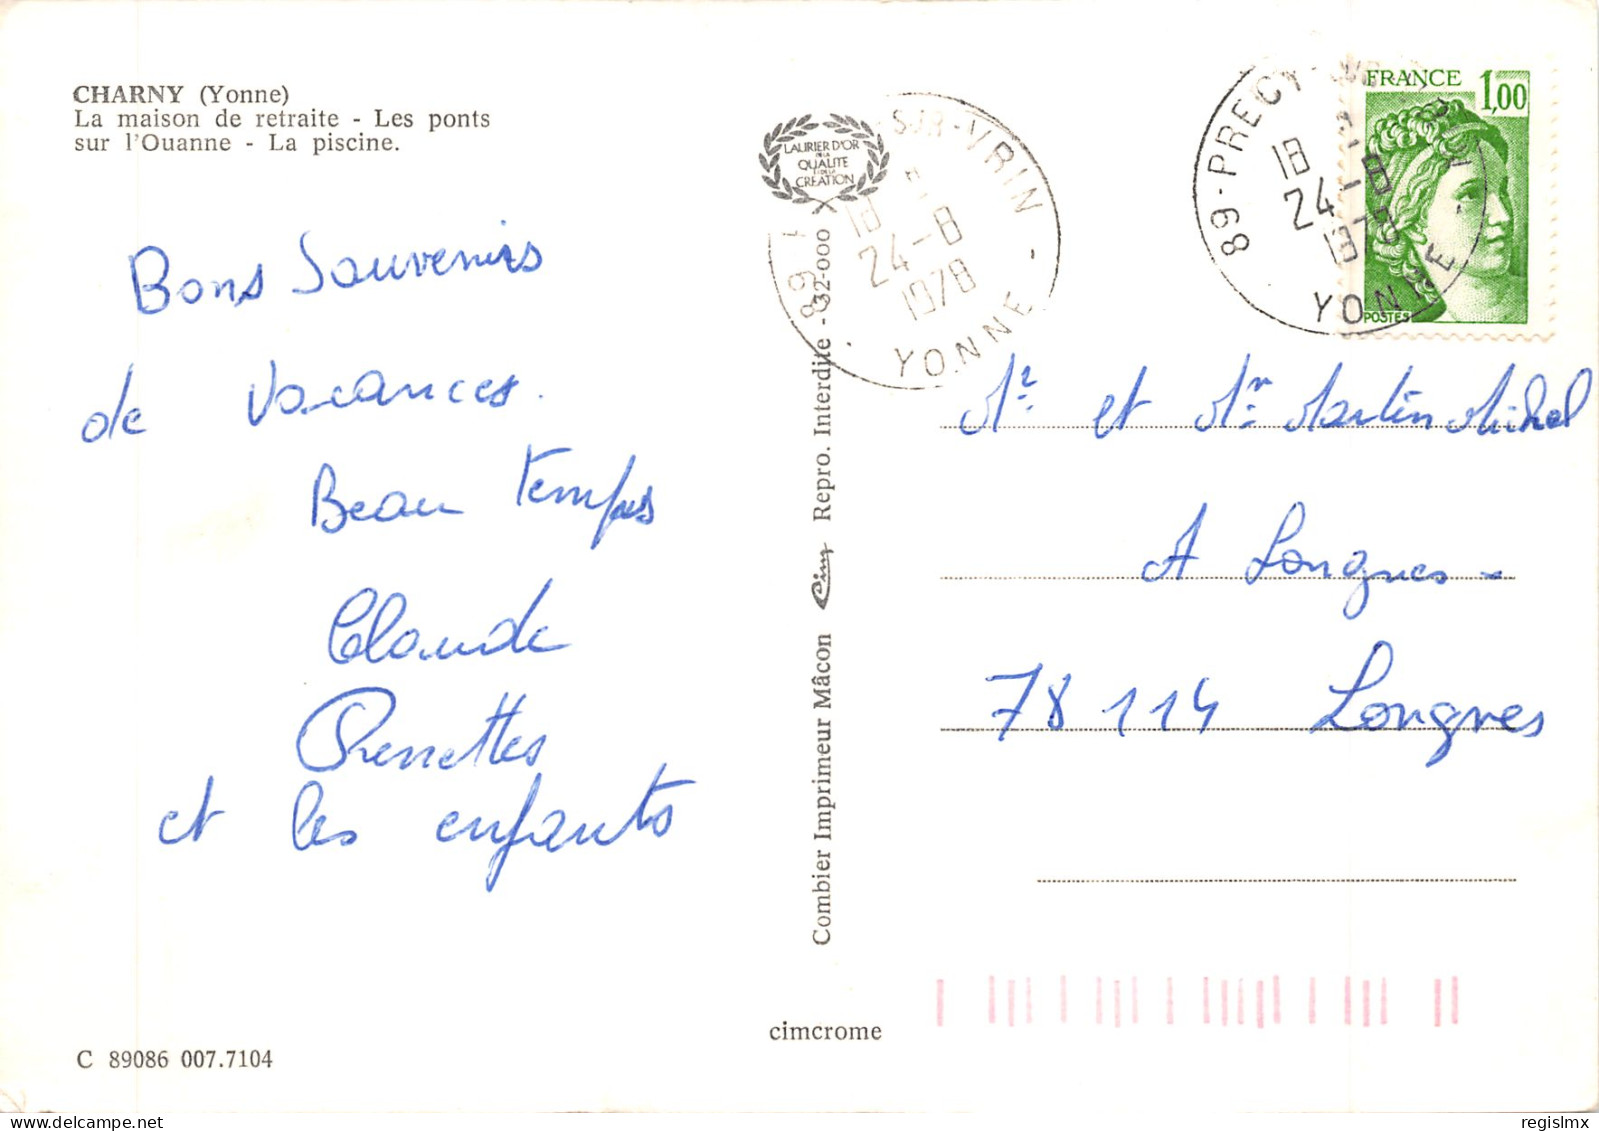 CHARNY (Yonne)
La maison de retraite - Les ponts
sur l'Ouanne - La piscine.
Bons Souvenirs
de Vacances.
Beau temps
Claude
et les enfants
C 89086 007.7104
LAURIER D'OR
DE LA
QUALITE
ET DE LA
CREATION
SUR-VRIN -
18
24-8
1978
YONNE
89
Combier Imprimeur Mâcon Cim Repro. Interdite - 32-000
cimcrome
89-PRECY-SUR
18
24-8
1978
YONNE -
FRANCE 1,00
POSTES
Mr et Mme Martin Michel
A Longnes -
78114 Longnes
regislmx